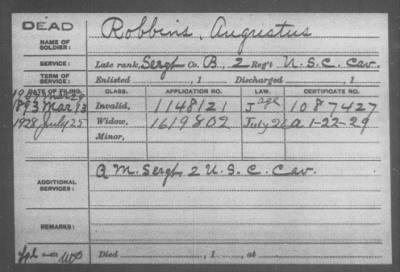 DEAD
NAME OF SOLDIER: Robbins, Augustus
SERVICE: Late rank, Sergt Co. B, 2 Reg't U.S.C. Cav.
TERM OF SERVICE: Enlisted , 1 Discharged , 1
DATE OF FILING. CLASS. APPLICATION NO. LAW. CERTIFICATE NO.
1893 Mar 13 Invalid, 1148121 J age 1087427
1928 July 25 Widow, 1619802 July 26 A 1-22-29
Minor,
ADDITIONAL SERVICES: Q M. Sergt 2 U.S.C. Cav.
REMARKS:
Died , 1 , at